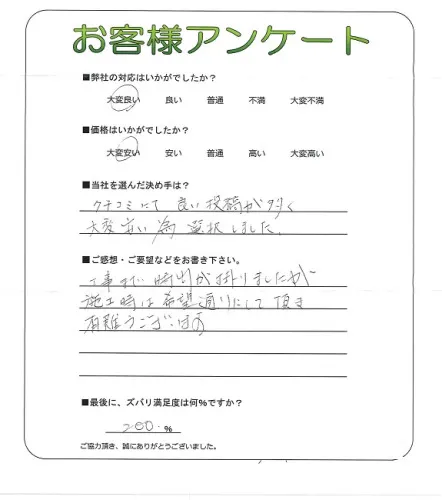 お客様アンケート
■弊社の対応はいかがでしたか?
大変良い 良い 普通 不満 大変不満
■価格はいかがでしたか?
大変安い 安い 普通 高い 大変高い
■当社を選んだ決め手は?
クチコミにて 良い 投稿が多く
大変安い為 選択しました。
■ご感想・ご要望などをお書き下さい。
工事まで 時間が掛りましたが
施工時は希望通りにして頂き
有難うございます
■最後に、ズバリ満足度は何%ですか?
200 %
ご協力頂き、誠にありがとうございました。